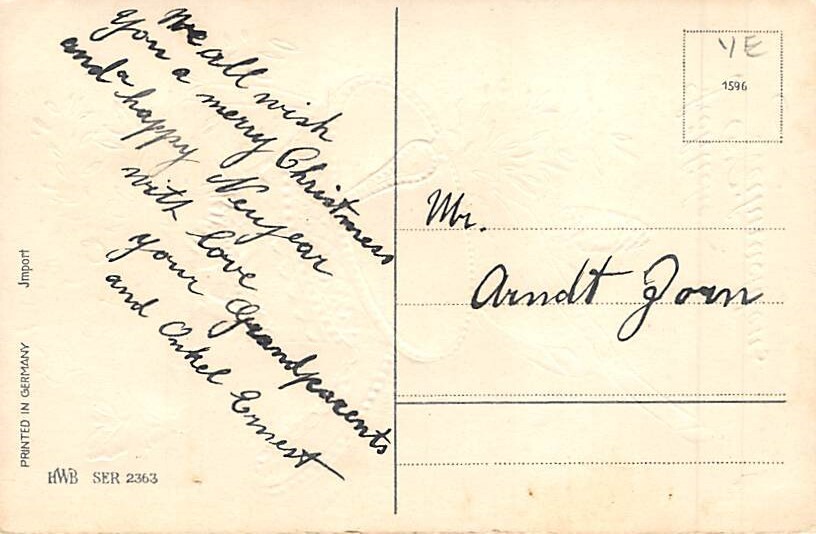 We all wish
you a merry Christmess
and a happy Newjear
with love
your Grandparents
and Onkel Ernest
YE
1596
Mr.
Arndt Joan
PRINTED IN GERMANY Jmport
HWB SER 2363